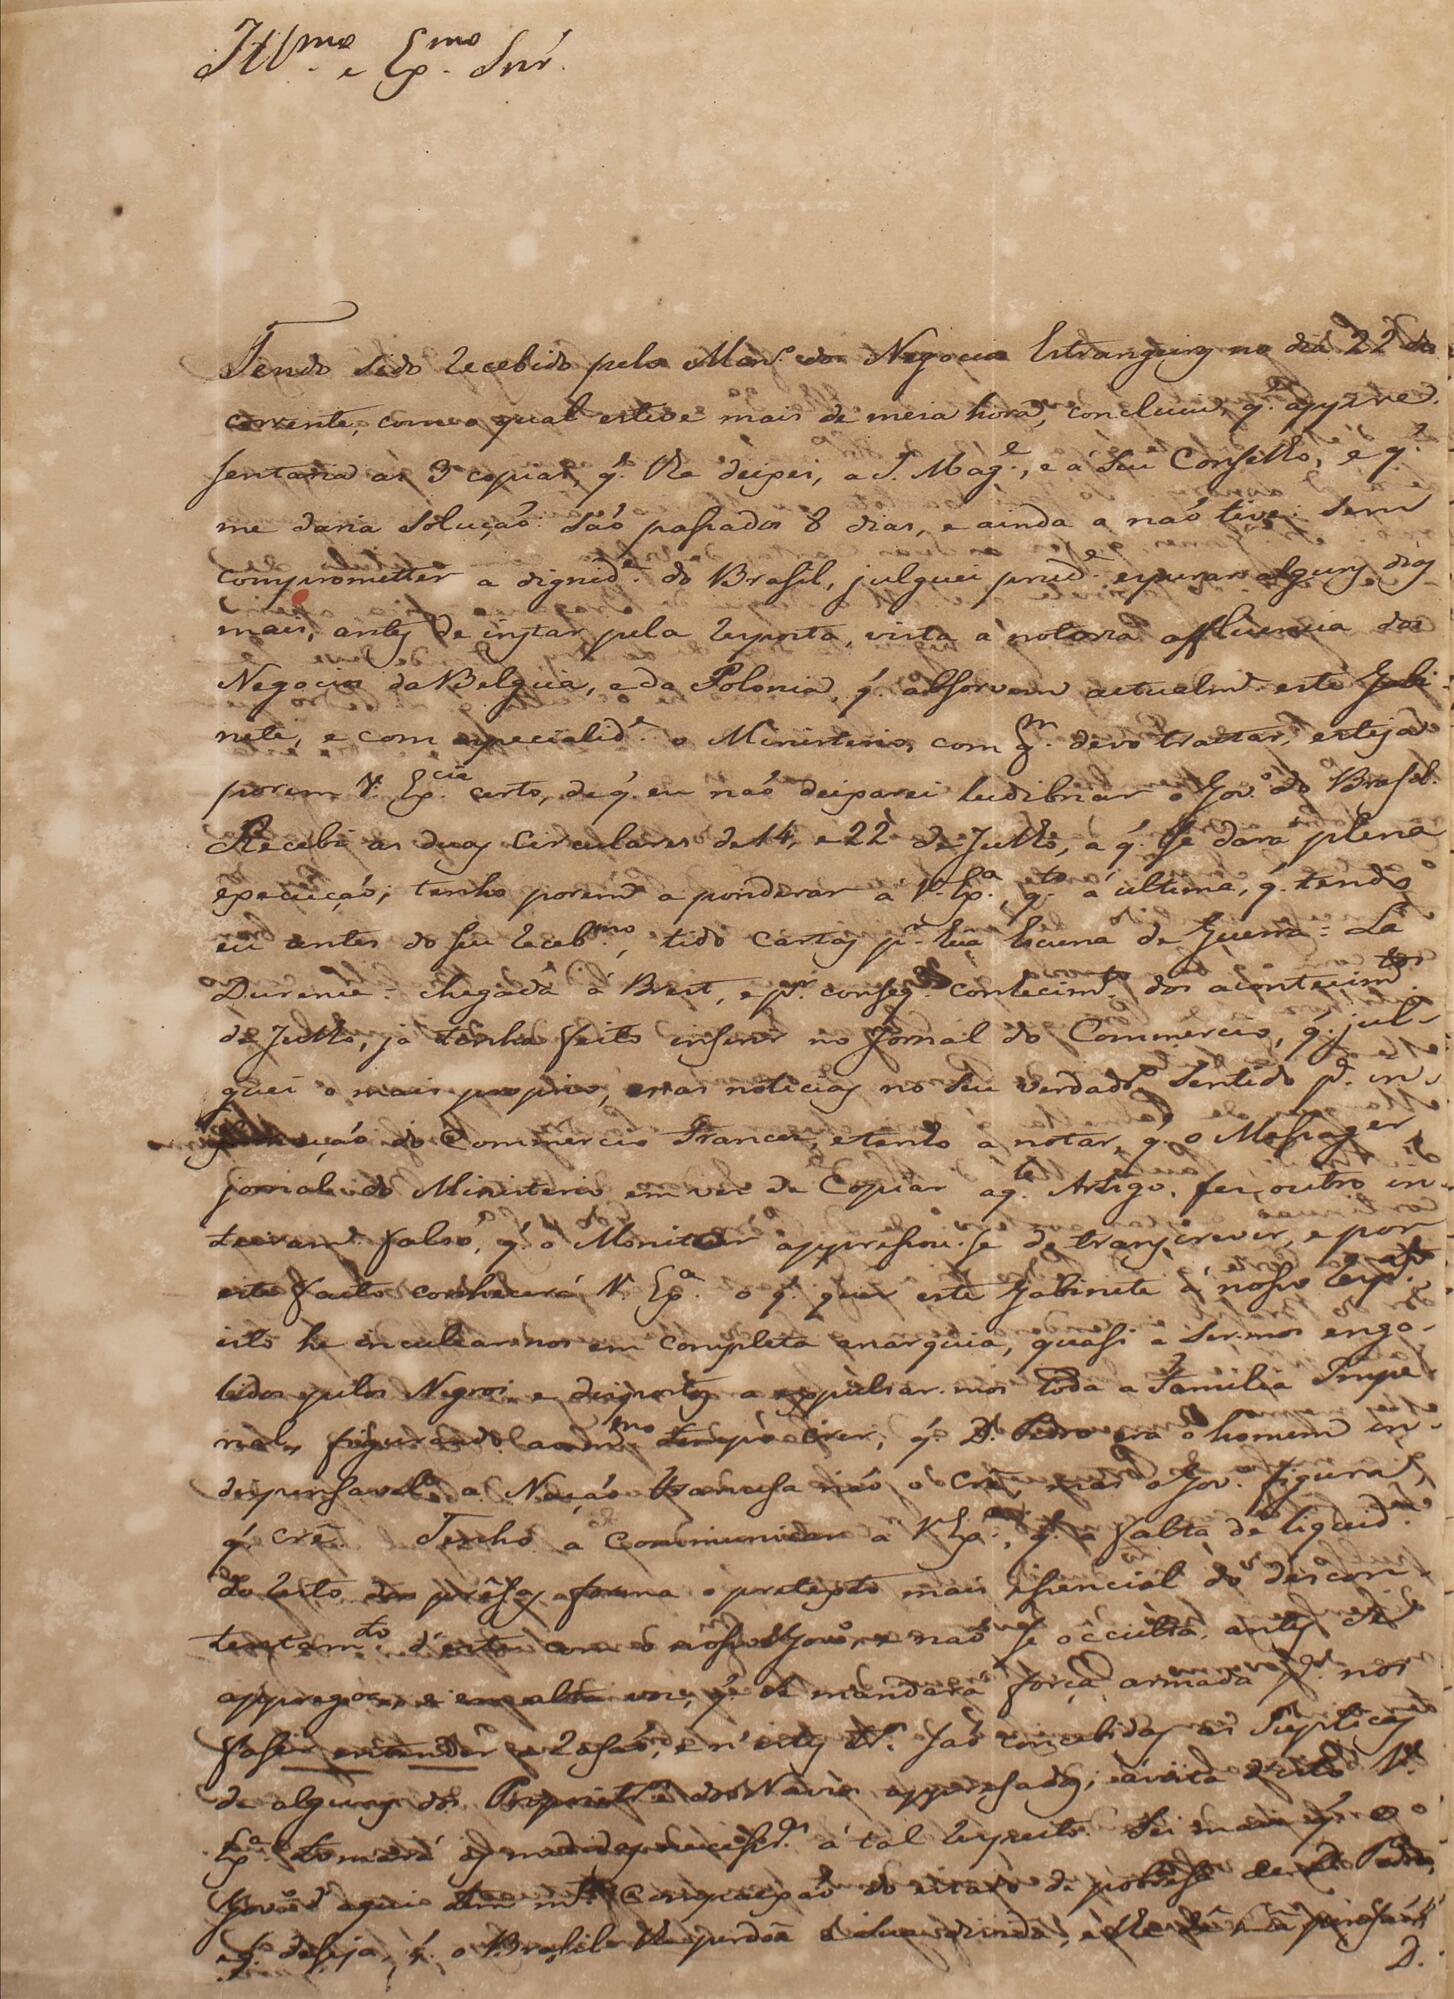 Ill.mo e Ex.mo Snr.
Tendo sido recebido pelo Min.º dos Negocios Estrangeiros no dia 22 do
corrente, com o qual estive mais de meia hora, concluiu, q. appre-
sentaria as 3 copias, q. lhe deixei, a S. Mag.e, e a seu Conselho, e q.
me daria solução: são passados 8 dias, e ainda a não tive. Sem
comprometter a dignid.e do Brasil, julguei prud.e esperar alguns dias
mais, antes de instar pela resposta, vista a notoria affluencia dos
Negocios da Belgica, e da Polonia, q. absorvem actualm.e este Gabi-
nete, e com especialid.e o Ministerio, com q.m devo trattar, esteja
porem V. Ex.cia certo, de q. eu não deixarei ludibriar o Gov.º do Brasil.
Recebi as duas Circulares de 14, e 22 de Julho, a q. se dará plena
execução; tenho porem a ponderar a V. Ex.a, q.to á ultima, q. tendo
eu antes do seu receb.mo, tido cartas p.r huã Escuna de Guerra = La
Durance = chegada a Brest, e p.r conseq.e conhecim.to dos acontecim.tos
de Julho, já tinha feito inserir no Jornal do Commercio, q. jul-
guei o mais proprio, essas noticias no seu verdad.o sentido p.a in-
strucção do Commercio Francez, e tenho a notar, q. o Messager,
jornal do Ministerio, em vez de Copiar aq.le Artigo, fez outro in-
teiram.e falso, q. o Moniteur appressou-se de transcrever, e por
este facto conhecerá V. Ex.a o q. quer este Gabinete á nosso resp.to
isto he inculcar-nos em completa anarquia, quasi a ser-mos engo-
lidos pelos Negros, e dispostos a expulsar-mos toda a Familia Impe-
rial, figurando ao m.mo tempo crer, q. D. Pedro era o homem in-
dispensavel: a Nação Francesa não o crê, mas o Gov.º figura,
q. crê. Tenho a communicar a V. Ex.a, q. a falta de liquid.
do resto das prêsas forma o pretexto mais essencial do descon-
tentam.to d'este com o nosso Governo, e não se occulta, antes se
apprega, e em alta voz, q. se mandará força armada p.a nos
faser entender a rasão, e n'estes tr.s são concebidas as Supplicas
de alguns dos Proprietr.s dos Navios appresados; á vista d'isto V.
Ex.a tomará as medidas necess.as á tal respeito. Sei mais q. o
Gov.º d'aqui tem m.ta Compaixão do estado de pobresa de D. Pedro,
e q. deseja, q. o Brasil lhe perdoe a sua divida, e lhe dê huã pensão
D.